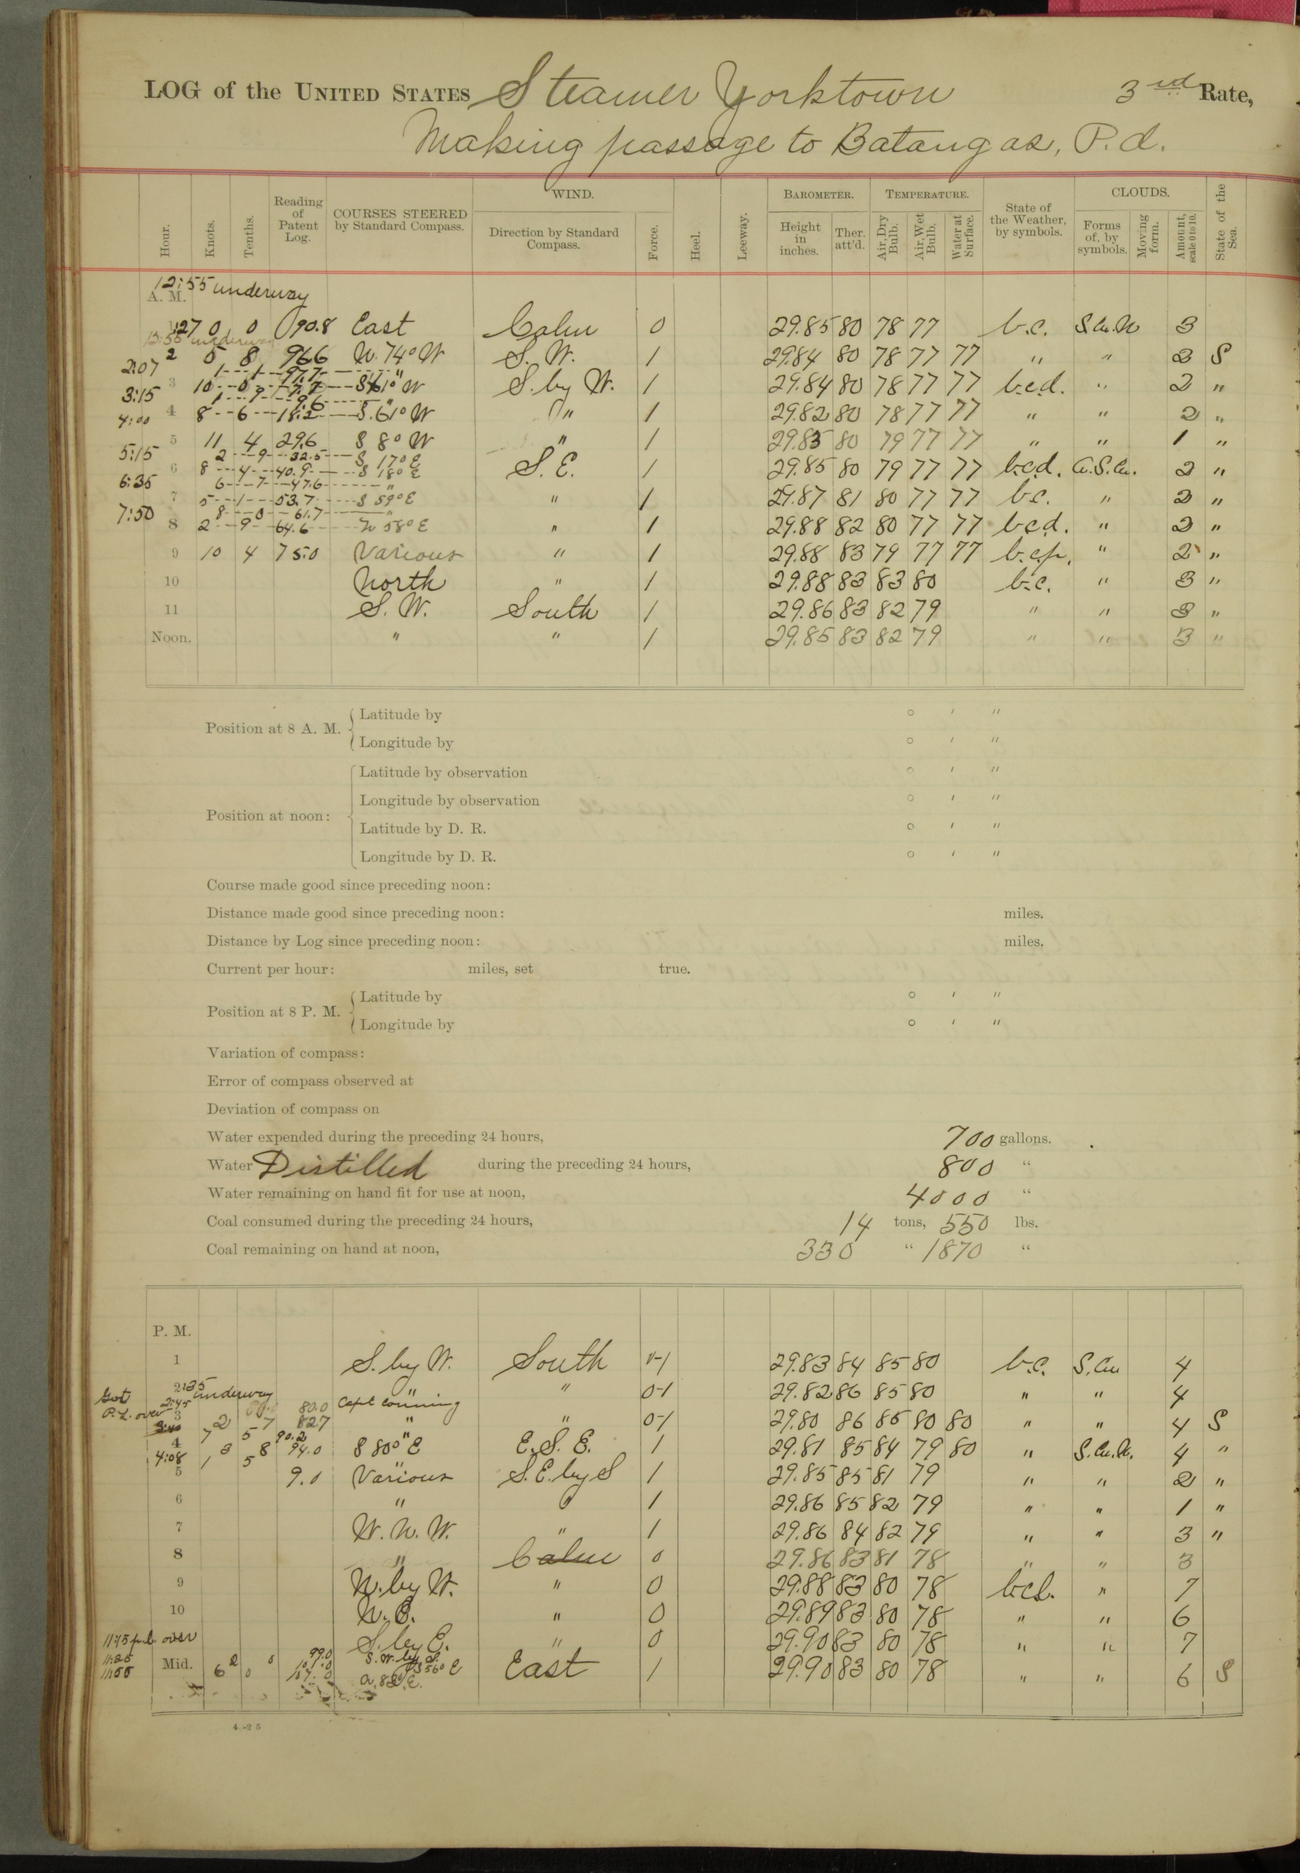 LOG of the UNITED STATES Steamer Yorktown 3rd Rate,
Making passage to Batangas, P. I.
Hour. Knots. Tenths. Reading of Patent Log. COURSES STEERED by Standard Compass. WIND. Direction by Standard Compass. Force. Heel. Leeway. BAROMETER. Height in inches. Ther. att'd. TEMPERATURE. Air, Dry Bulb. Air, Wet Bulb. Water at Surface. State of the Weather, by symbols. CLOUDS. Forms of, by symbols. Moving form. Amount, scale 0 to 10. State of the Sea.
12:55 underway
A. M.
0 0 90.8 East Calm 0 29.85 80 78 77 b.c. S.Cu.N 3
2:07 2 5 8 96.6 N. 74° W S. W. 1 29.84 80 78 77 77 " " 2 S
1 1 97.7 "
3:15 3 10 0 7.7 S 61° W S. by W. 1 29.84 80 78 77 77 b.c.d. " 2 "
1 9.6 "
4:00 4 8 6 18.2 S. 61° W " 1 29.82 80 78 77 77 " " 2 "
5 11 4 29.6 S 8° W " 1 29.85 80 79 77 77 " " 1 "
5:15 2 9 32.5 S 17° E
6 8 4 40.9 S 18° E S. E. 1 29.85 80 79 77 77 b.c.d. 2 "
6:35 6 7 47.6 "
7 5 1 53.7 S 59° E " 1 29.87 81 80 77 77 b.c. " 2 "
7:50 8 0 61.7 "
8 2 9 64.6 N 58° E " 1 29.88 82 80 77 77 b.c.d. " 2 "
9 10 4 75.0 Various " 1 29.88 83 79 77 77 b.c.p. " 2 "
10 North " 1 29.88 83 83 80 b.c. " 3 "
11 S. W. South 1 29.86 83 82 79 " " 3 "
Noon. " " 1 29.85 83 82 79 " " 3 "
Position at 8 A. M. Latitude by ° ′ ″
Longitude by ° ′ ″
Position at noon: Latitude by observation ° ′ ″
Longitude by observation ° ′ ″
Latitude by D. R. ° ′ ″
Longitude by D. R. ° ′ ″
Course made good since preceding noon:
Distance made good since preceding noon: miles.
Distance by Log since preceding noon: miles.
Current per hour: miles, set true.
Position at 8 P. M. Latitude by ° ′ ″
Longitude by ° ′ ″
Variation of compass:
Error of compass observed at
Deviation of compass on
Water expended during the preceding 24 hours, 700 gallons.
Water Distilled during the preceding 24 hours, 800 "
Water remaining on hand fit for use at noon, 4000 "
Coal consumed during the preceding 24 hours, 14 tons, 550 lbs.
Coal remaining on hand at noon, 330 " 1870 "
P. M.
1 S. by W. South 0-1 29.83 84 85 80 b.c. S.Cu 4
Got underway 2:35
2 " " 0-1 29.82 86 85 80 " " 4
P.L. over 2:45 80.0 Capt conning
3 2 7 82.7 " " 0-1 29.80 86 85 80 80 " " 4 S
7 5 90.2 "
4 3 8 94.0 S 80° E E. S. E. 1 29.81 85 84 79 80 " S.Cu.N. 4 "
4:08 1 5
5 9.0 Various S. E. by S 1 29.85 85 81 79 " " 2 "
6 " " 1 29.86 85 82 79 " " 1 "
7 W. N. W. " 1 29.86 84 82 79 " " 3 "
8 " Calm 0 29.86 83 81 78 " " 3
9 N. by W. " 0 29.88 83 80 78 " 7
10 N. E. " 0 29.89 83 80 78 " " 6
over S. by E. " 0 29.90 83 80 78 " " 7
11:55 Mid. 6 East 1 29.90 83 80 78 " " 6 S
4-25